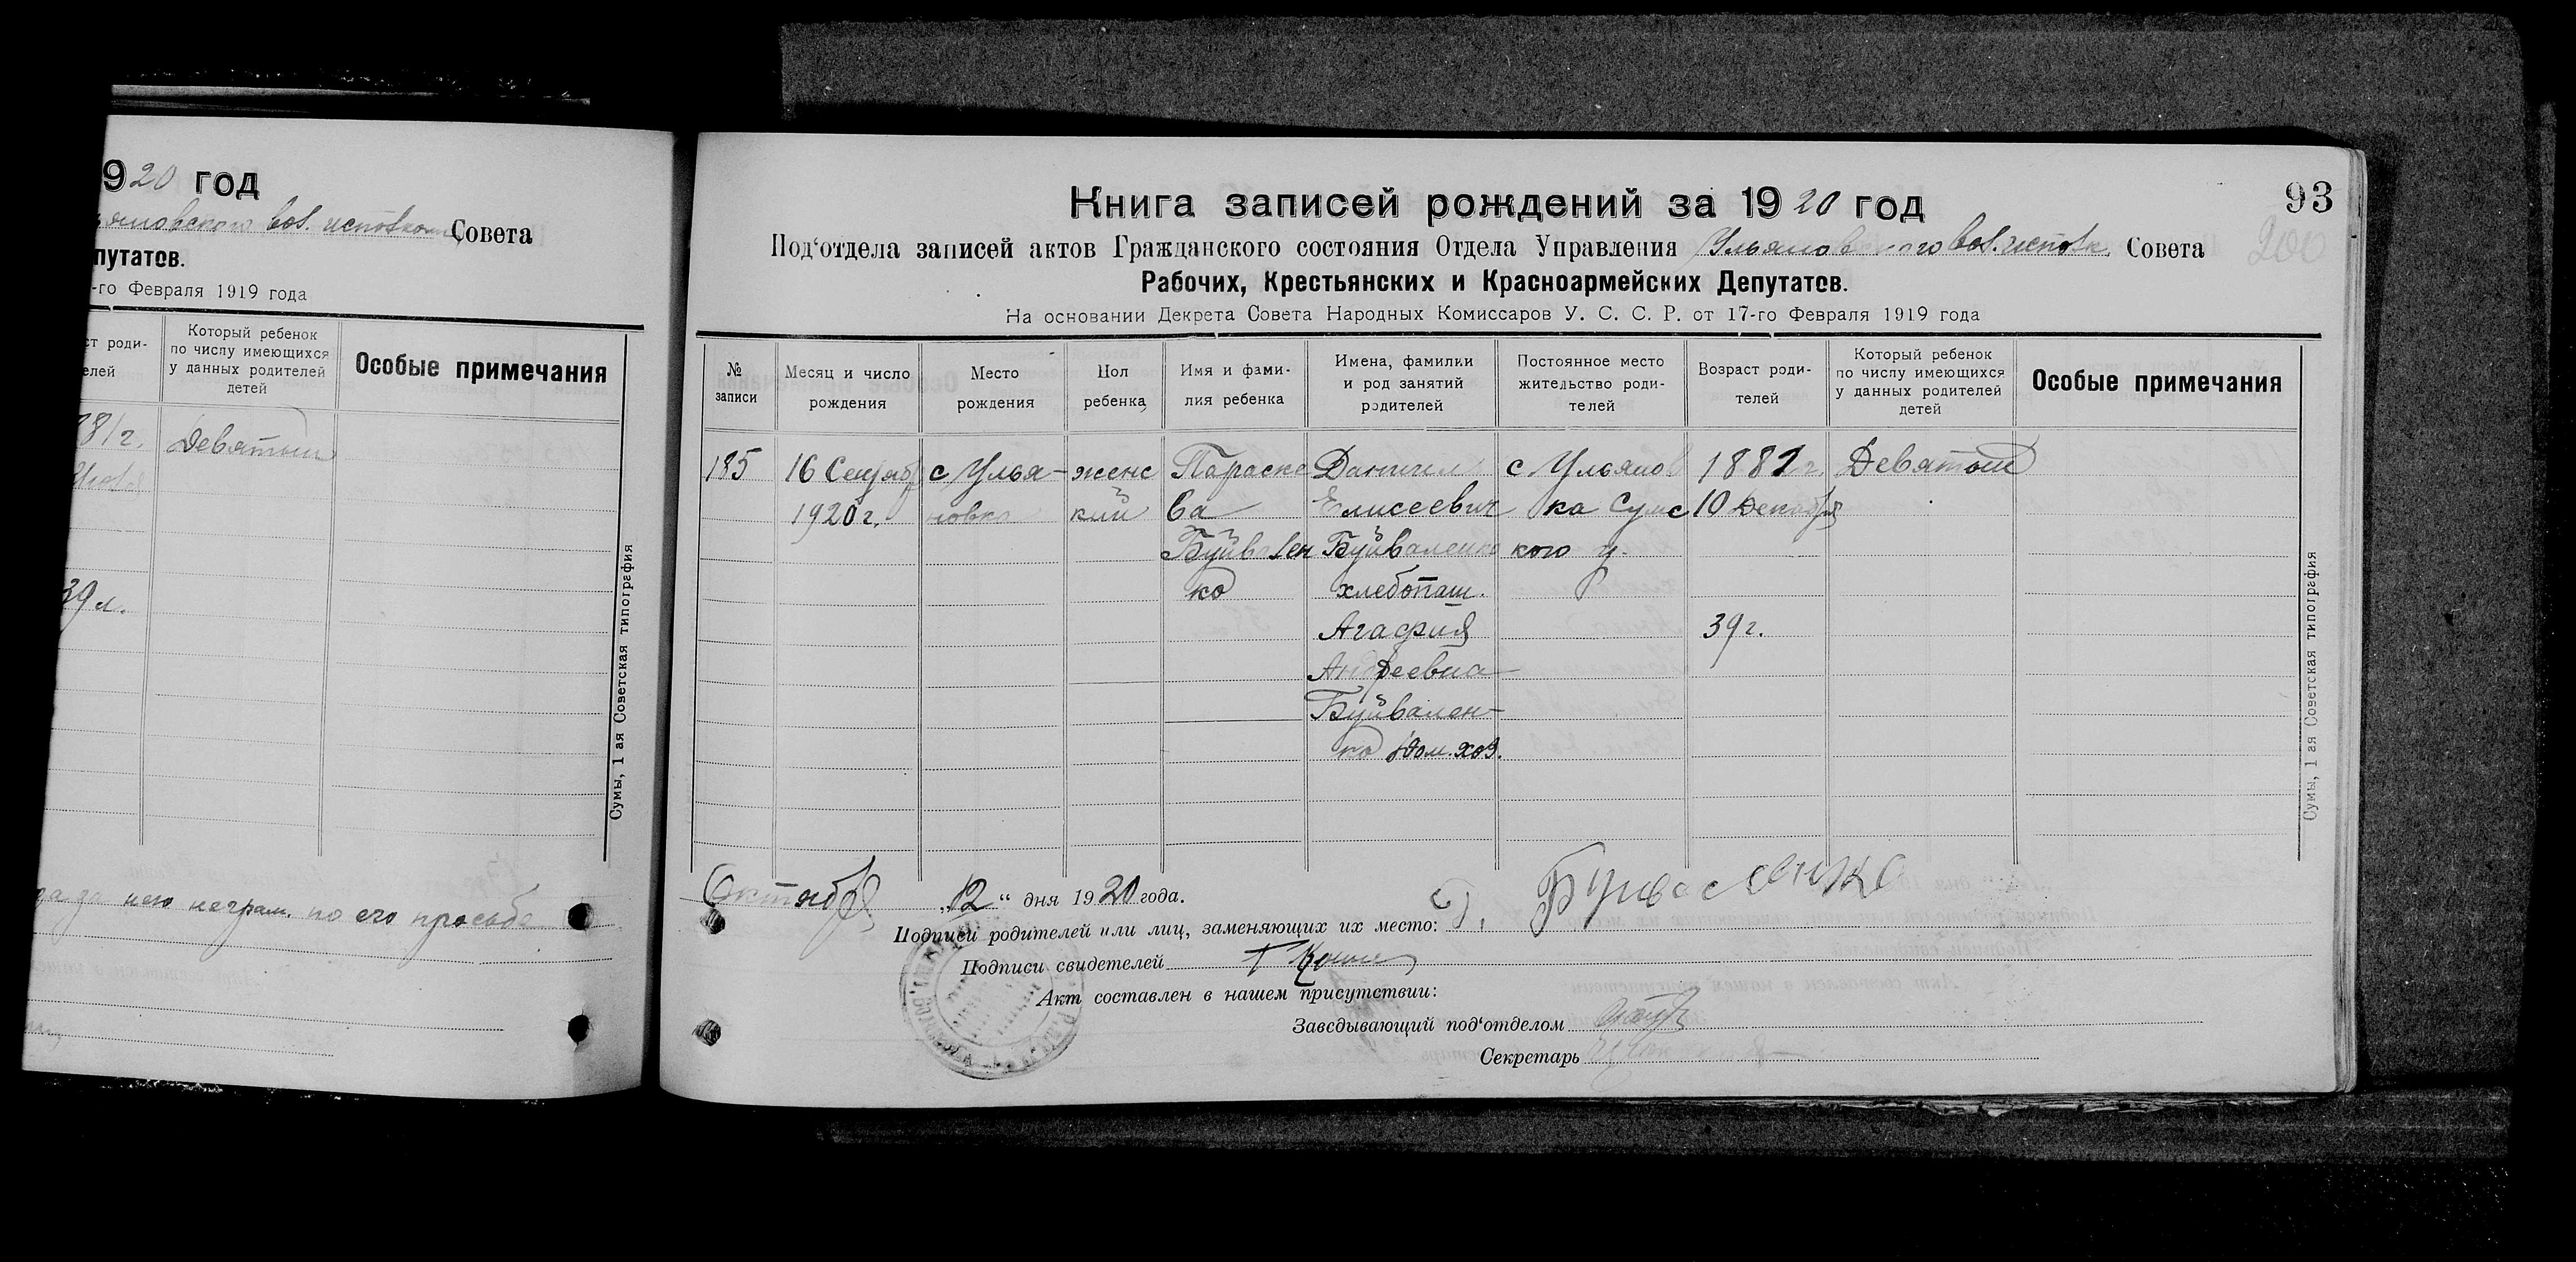 920 год
яновского вол. исполком Совета
путатов.
-го Февраля 1919 года
ст роди-
елей
Который ребенок
по числу имеющихся
у данных родителей
детей
Особые примечания
Девятый
39 л.
за него неграм. по его просьбе
Сумы, 1 ая Советская типография
93
200
Книга записей рождений за 1920 год
Под‘отдела записей актов Гражданского состояния Отдела Управления Ульяновского вол. исполк. Совета
Рабочих, Крестьянских и Красноармейских Депутатов.
На основании Декрета Совета Народных Комиссаров У. С. С. Р. от 17-го Февраля 1919 года
№
записи
Месяц и число
рождения
Место
рождения
Пол
ребенка
Имя и фами-
лия ребенка
Имена, фамилии
и род занятий
родителей
Постоянное место
жительство роди-
телей
Возраст роди-
телей
Который ребенок
по числу имеющихся
у данных родителей
детей
Особые примечания
185 16 Сентяб с Улья- женс Параске Даниил с Ульянов 1881 г. Девятый
1920 г. новка кий ва Елисеевич ка Сумс 10 Декабря
Буйвален Буйваленко кого у.
ко хлебопаш.
Агафия 39 г.
Андреевна
Буйвален-
ко дом. хоз.
Сумы, 1 ая Советская типография
Октября „12“ дня 1920 года.
Подписи родителей или лиц, заменяющих их место: Д. Буйваленко
Подписи свидетелей
Акт составлен в нашем присутствии:
Заведывающий под‘отделом
Секретарь